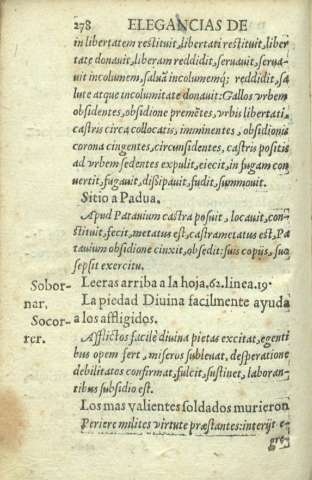 278 ELEGANCIAS DE
in libertatem restituit, libertati restituit, liber
tate donauit, liberam reddidit, seruauit, serua-
uit incolumem, saluã incolumemq; reddidit, sa
lute atque incolumitate donauit: Gallos vrbem
obsidentes, obsidione premẽtes, vrbis libertati,
castris circa collocatis, imminentes, obsidionis
corona cingentes, circunsidentes, castris positis
ad vrbem sedentes expulit, eiecit, in fugam con
uertit, fugauit, dissipauit, fudit, summouit.
Sitio a Padua.
Apud Patauium castra posuit, locauit, con-
stituit, fecit, metatus est, castrametatus est, Pa
tauium obsidione cinxit, obsedit: suis copijs, suo
sepsit exercitu.
Sobor-
nar.
Leeras arriba a la hoja, 62. linea. 19.
La piedad Diuina facilmente ayuda
Socor-
rer.
a los affligidos.
Afflictos facilè diuina pietas excitat, egenti
bus opem fert, miseros subleuat, desperatione
debilitatos confirmat, fulcit, sustinet, laboran-
tibus subsidio est.
Los mas valientes soldados murieron
Periere milites virtute præstantes: interijt e-
gre-